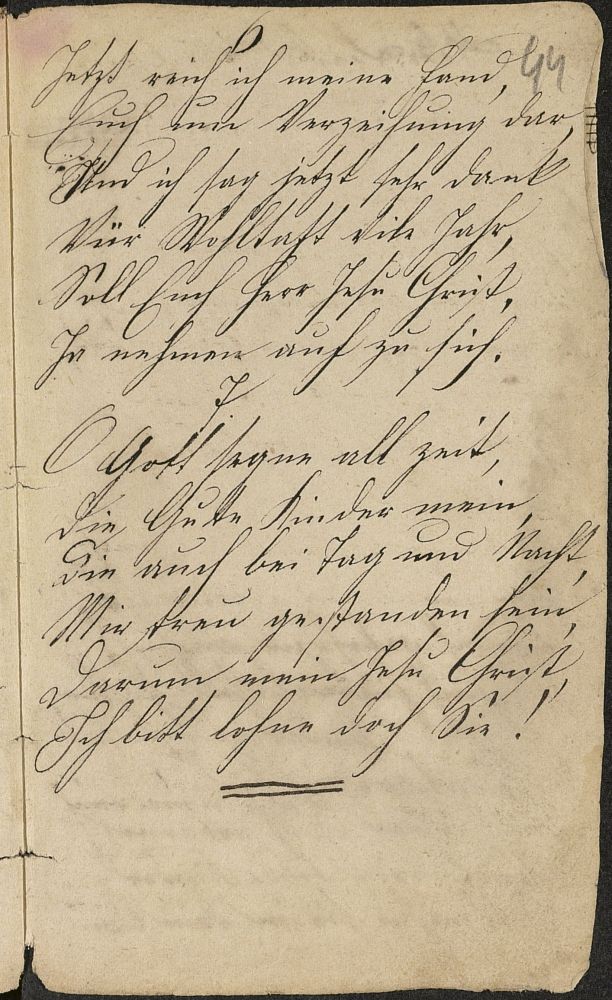 6
44
Jetzt reich ich meine Hand,
Euch um Verzeihung dar,
Und ich sag jetzt sehr dank
Vür Wohltaht vile Jahr,
Soll Euch Herr Jesu Christ,
Ja nehmen auf zu sich.
7.
O Gott segne all zeit,
die Gute Kinder mein,
Die auch bei Tag und Nacht,
Mir treu gestanden sein,
Darum mein Jesu Christ,
Ich bitt lohne doch Sie!